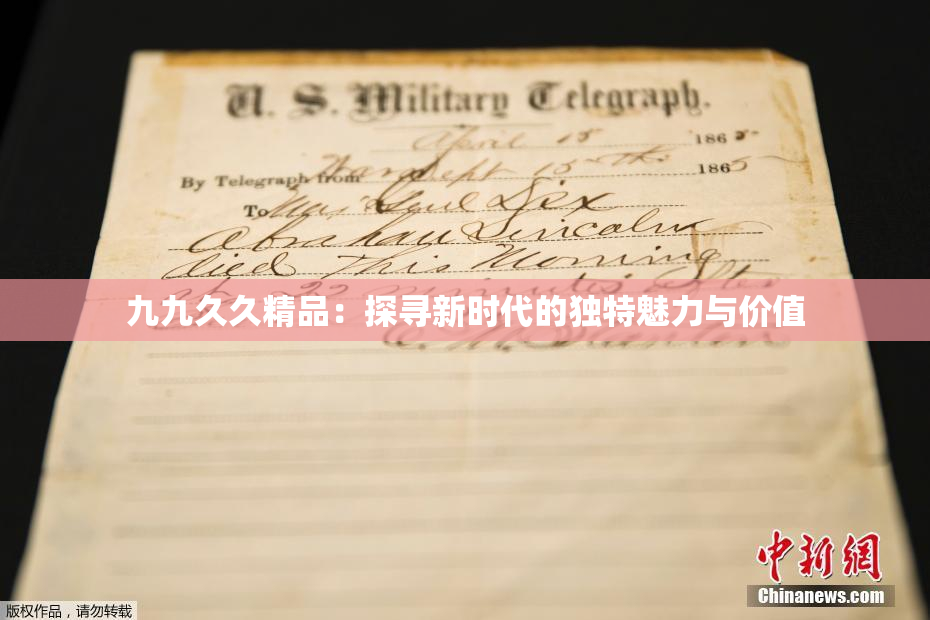 U. S. Military Telegraph.
April 15 1865
By Telegraph from War Dept 15th 1865
To Maj Genl Dix
Abraham Lincoln
died This Morning
at 22 minutes after
九九久久精品：探寻新时代的独特魅力与价值
E. M. Stanton
中新网
Chinanews.com
版权作品，请勿转载